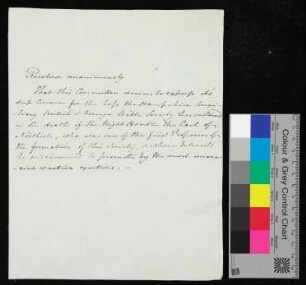 Resolved unanimously
That this Committee desires to express its
deep concern for the loss the Hampshire Auxi-
liary British & Foreign Bible Society has sustained
in the death of the Right Honble the Earl of
Northesk, who was one of the first
the formation of this Society, whose Interests
he endeavoured to promote by the most
and exertions.
Colour & Grey Control Chart